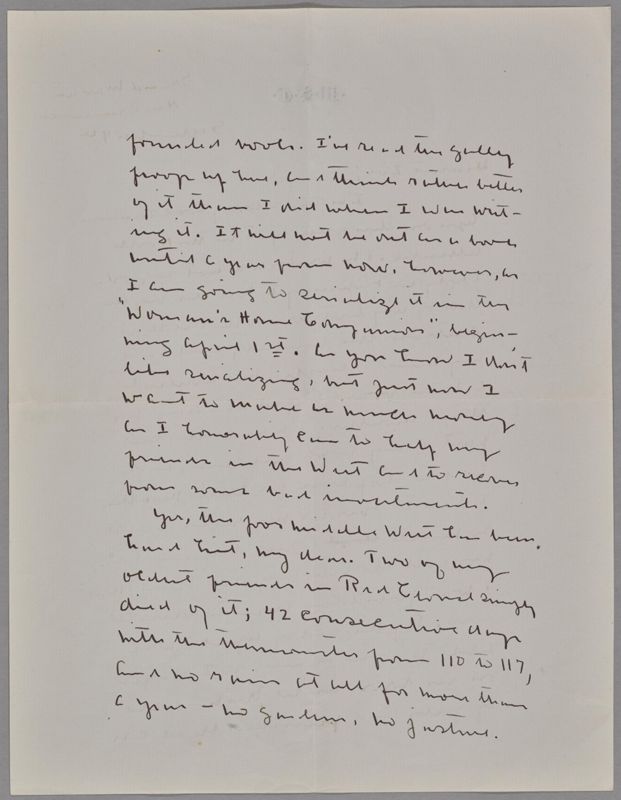 founded book. I've read the galley
proofs up here, and think rather better
of it than I did when I was writ-
ing it. It will not be out as a book
until a year from now, however, as
I am going to serialize it in the
"Woman's Home Companion", begin-
ning April 1st. As you know I don't
like serializing, but just now I
want to make as much money
as I honorably can to help my
friends in the West and to recover
from some bad investments.
Yes, the poor middle West has been
hard hit, my dear. Two of my
oldest friends in Red Cloud simply
died of it; 42 consecutive days
with the thermometer from 110 to 117,
and no rain at all for more than
a year - no gardens, no pasture.